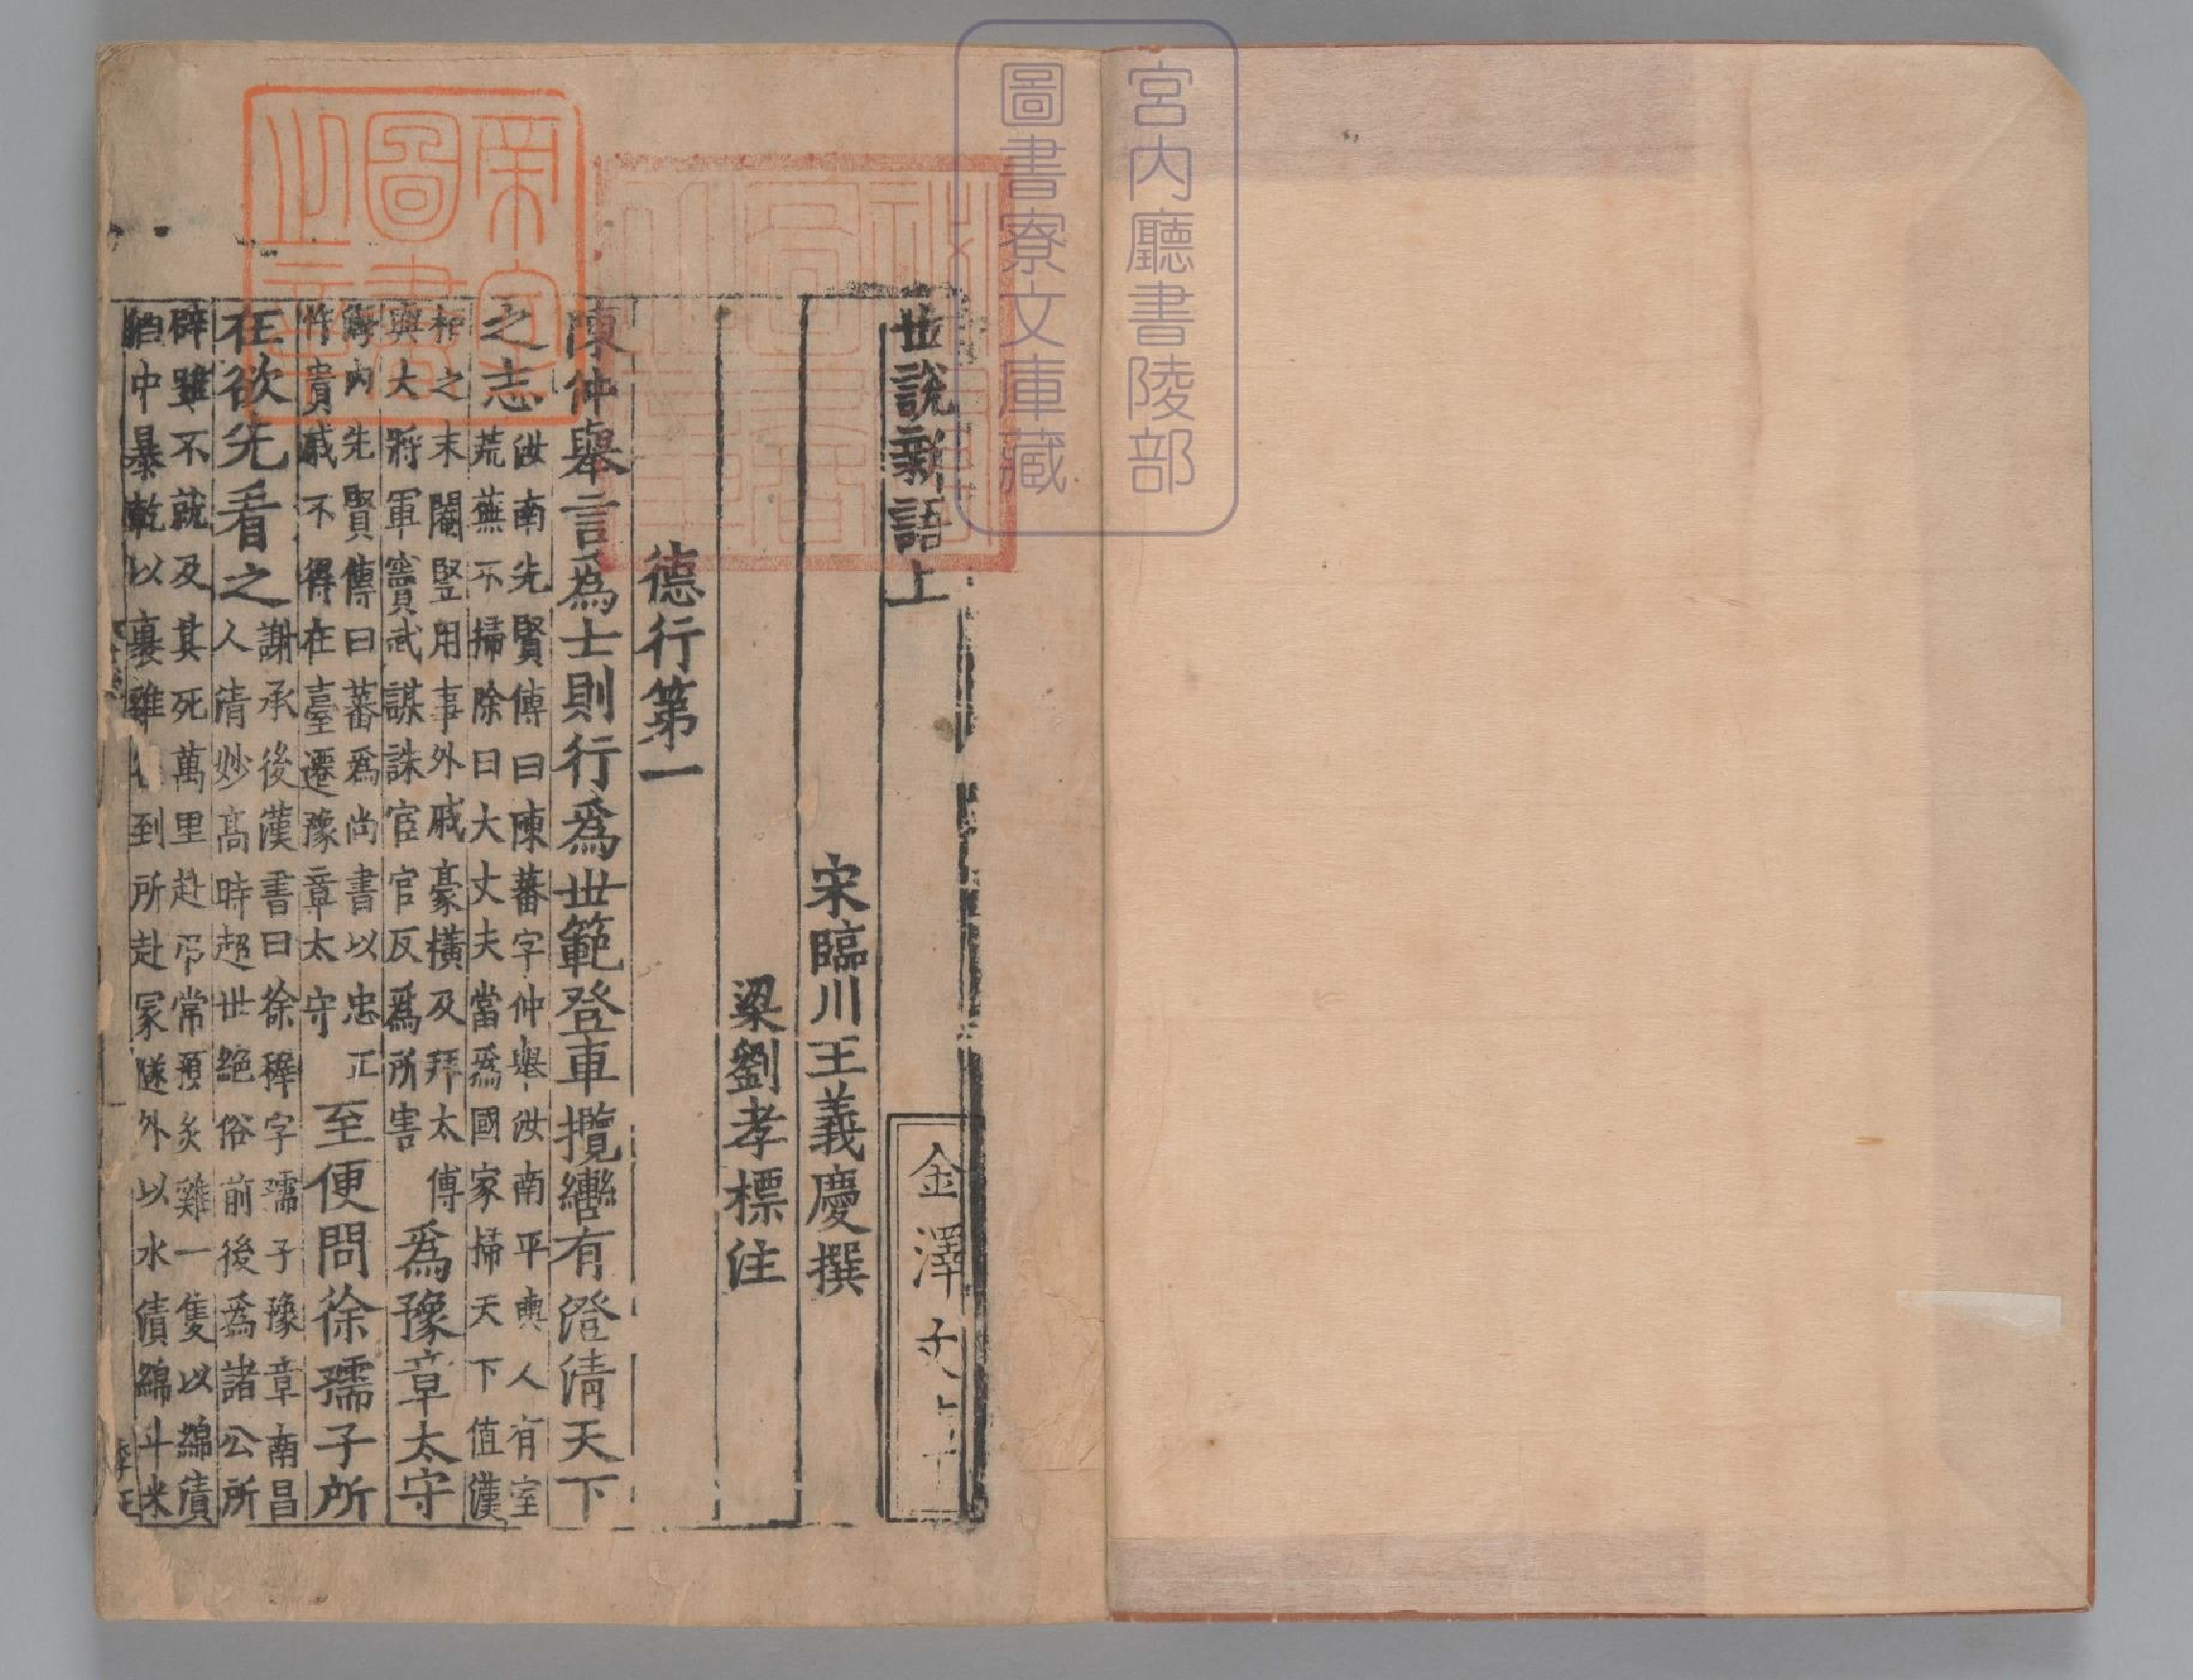 宮内廳書陵部
圖書寮文庫藏
世說新語上
金澤文庫
宋臨川王義慶撰
梁劉孝標注
德行第一
陳仲舉言爲士則行爲世範登車攬轡有澄清天下
之志
汝南先賢傳曰陳蕃字仲舉汝南平輿人有室
荒蕪不掃除曰大丈夫當爲國家掃天下值漢
之末閹竪用事外戚豪橫及拜太傅
與大將軍竇武謀誅宦官反爲所害
爲豫章太守
海內先賢傳曰蕃爲尚書以忠正
忤貴戚不得在臺遷豫章太守
至便問徐孺子所
在欲先看之
謝承後漢書曰徐穉字孺子豫章南昌
人清妙高時超世絕俗前後爲諸公所
辟雖不就及其死萬里赴弔常預炙雞一隻以綿漬
酒中暴乾以裹雞到所赴冢隧外以水漬綿斗米
圖書